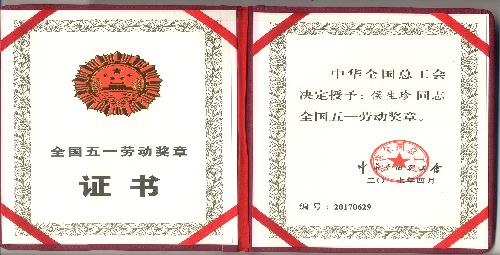 全国五一劳动奖章
证书
中华全国总工会
决定授予：侯生珍同志
全国五一劳动奖章。
中华全国总工会
二〇一七年四月
编号：20170629